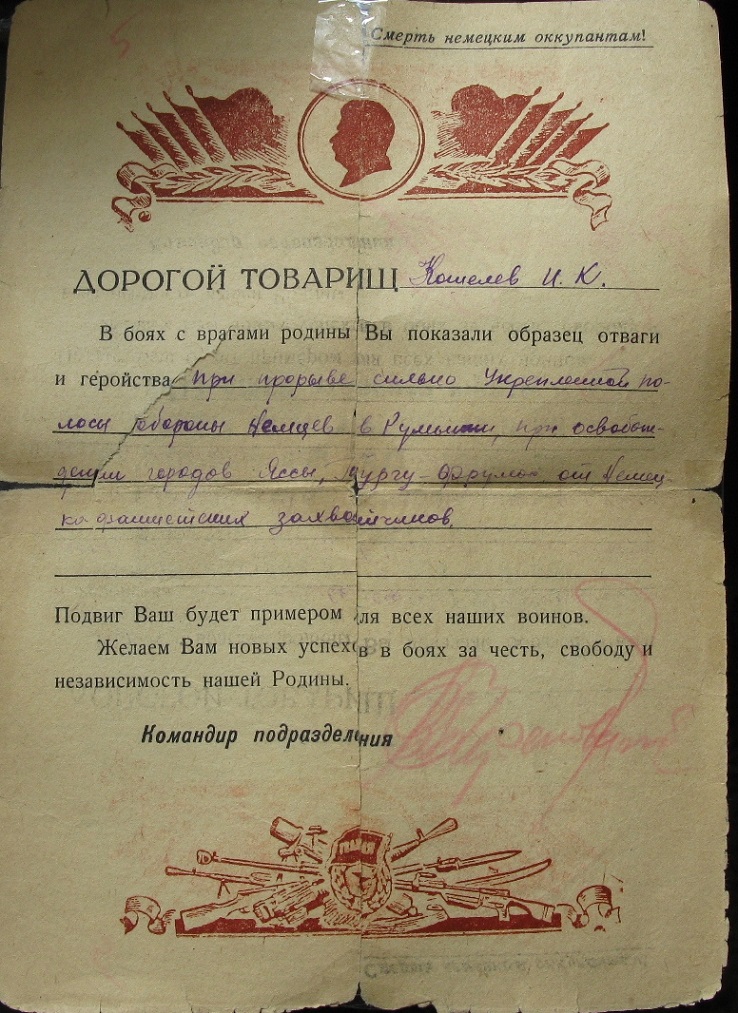 Смерть немецким оккупантам!
ДОРОГОЙ ТОВАРИЩ Кошелев И. К.
В боях с врагами родины Вы показали образец отваги
и геройства при прорыве сильно укрепленной по-
лосы обороны немцев в Румынии, при освобож-
дении городов Яссы, Тургу-Фрумос от немец-
ко фашистских захватчиков.
Подвиг Ваш будет примером для всех наших воинов.
Желаем Вам новых успехов в боях за честь, свободу и
независимость нашей Родины.
Командир подразделения
ГВАРДИЯ